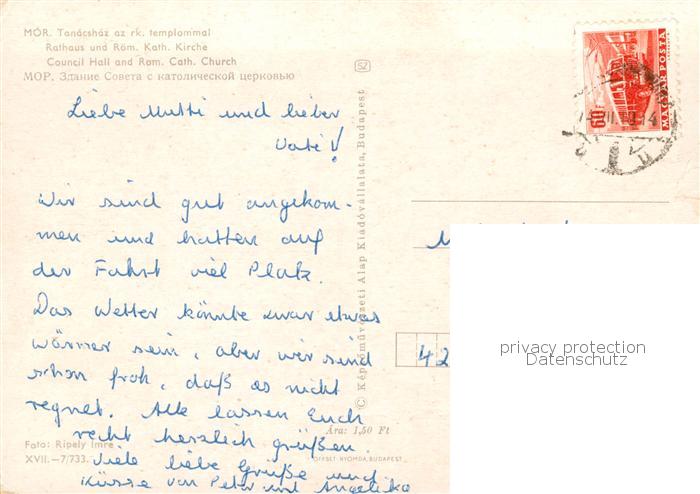 MÓR. Tanácsház az rk. templommal
Rathaus und Röm. Kath. Kirche
Council Hall and Rom. Cath. Church
МОР. Здание Совета с католической церковью
Liebe Mutti und lieber
Vati!
Wir sind gut angekom-
men und hatten auf
der Fahrt viel Platz.
Das Wetter könnte zwar etwas
wärmer sein, aber wir sind
schon froh, daß es nicht
regnet. Alle lassen Euch
recht herzlich grüßen.
Viele liebe Grüße und
Küsse von Peter und Angelika
Foto: Ripely Imre
XVII.—7/733.
SZ
© Képzőművészeti Alap Kiadóvállalata, Budapest
Ára: 1,50 Ft
OFFSET NYOMDA, BUDAPEST
60 f
MAGYAR POSTA
42
privacy protection
Datenschutz